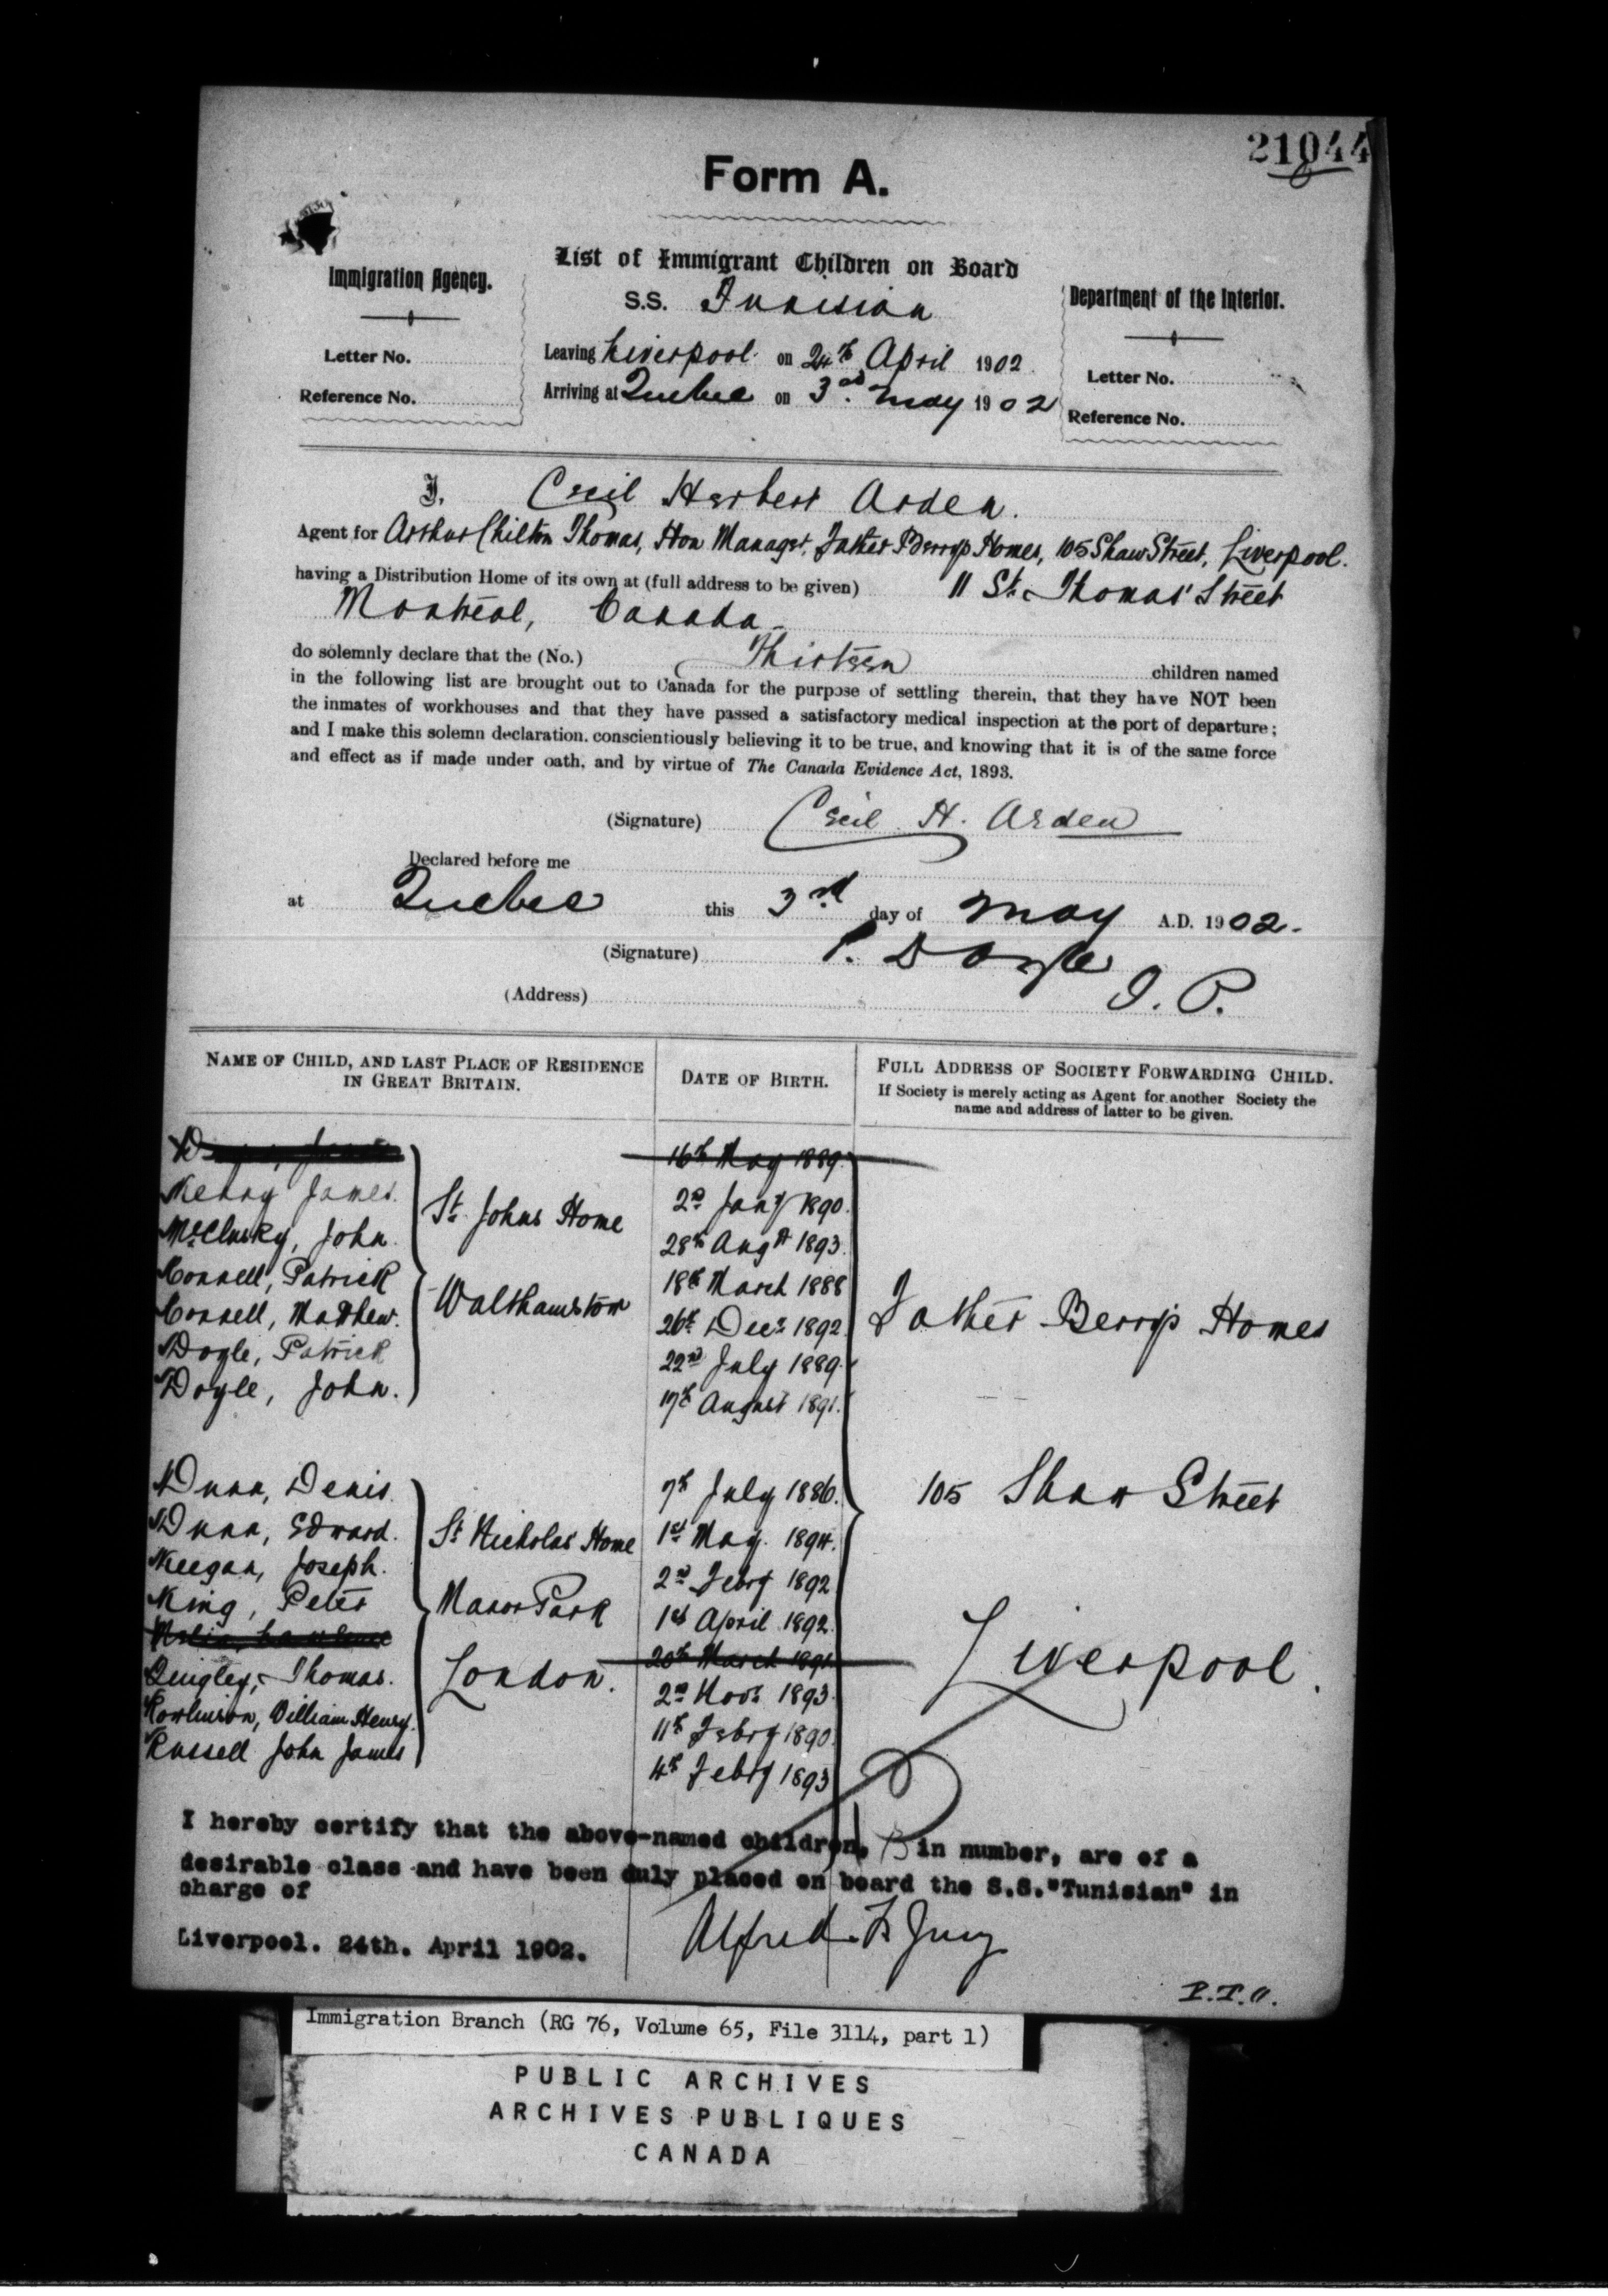 21044
Form A.
List of Immigrant Children on Board
S.S. Tunisian
Immigration Agency.
Letter No.
Reference No.
Department of the Interior.
Letter No.
Reference No.
Leaving Liverpool on 24th April 1902.
Arriving at Quebec on 3rd May 1902
I, Cecil Herbert Arden.
Agent for Arthur Chilton Thomas, Hon Manager, Father Berry's Homes, 105 Shaw Street, Liverpool.
having a Distribution Home of its own at (full address to be given) 11 St. Thomas' Street
Montreal, Canada
do solemnly declare that the (No.) Thirteen children named
in the following list are brought out to Canada for the purpose of settling therein, that they have NOT been
the inmates of workhouses and that they have passed a satisfactory medical inspection at the port of departure;
and I make this solemn declaration. conscientiously believing it to be true, and knowing that it is of the same force
and effect as if made under oath, and by virtue of The Canada Evidence Act, 1893.
(Signature) Cecil H. Arden
Declared before me
at Quebec this 3rd day of May A.D. 1902.
(Signature) P. Doyle
(Address) J. P.
NAME OF CHILD, AND LAST PLACE OF RESIDENCE
IN GREAT BRITAIN.
DATE OF BIRTH.
FULL ADDRESS OF SOCIETY FORWARDING CHILD.
If Society is merely acting as Agent for another Society the
name and address of latter to be given.
16th May 1889.
Kenny James. 2nd Jany 1890.
McClusky, John. 28th Augst 1893.
Connell, Patrick 18th March 1888
Connell, Matthew. 26th Decr 1892.
Doyle, Patrick 22nd July 1889.
Doyle, John. 17th August 1891.
St. Johns Home
Walthamstow
Dunn, Denis. 7th July 1886.
Dunn, Edward. 1st May. 1894.
Keegan, Joseph. 2nd Febry 1892
King, Peter 1st April 1892.
20th March 1891
Quigley, Thomas. 2nd Novr 1893.
Rowlinson, William Henry. 11th Febry 1890.
Russell John James 4th Febry 1893
St Nicholas' Home
Manor Park
London.
Father Berry's Homes
105 Shaw Street
Liverpool.
I hereby certify that the above-named children, 13 in number, are of a
desirable class and have been duly placed on board the S.S."Tunisian" in
charge of
Liverpool. 24th. April 1902.
Alfred F. Jury
P.T.O.
Immigration Branch (RG 76, Volume 65, File 3114, part 1)
PUBLIC ARCHIVES
ARCHIVES PUBLIQUES
CANADA